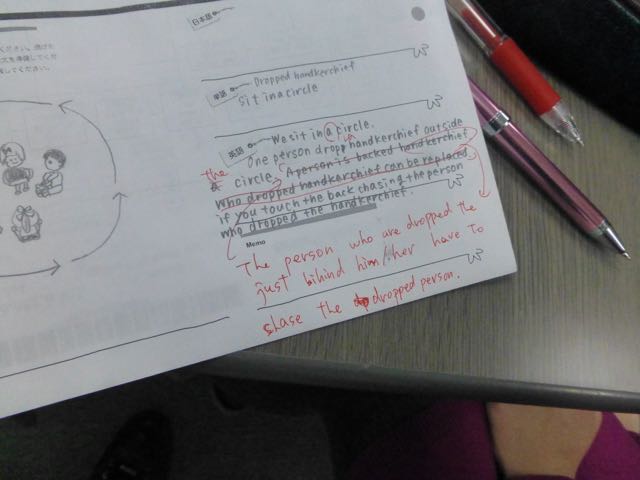 日本語
ください。
単語
Dropped handkerchief
sit in a circle
英語
We sit in a circle.
One person dropp handkerchief outside
the
circle. A person is backed handkerchief
who dropped handkerchief can be replaced
if you touch the back chasing the person
who dropped the handkerchief.
Memo
The person who are dropped the
just bihind him/her have to
shase the dropped person.